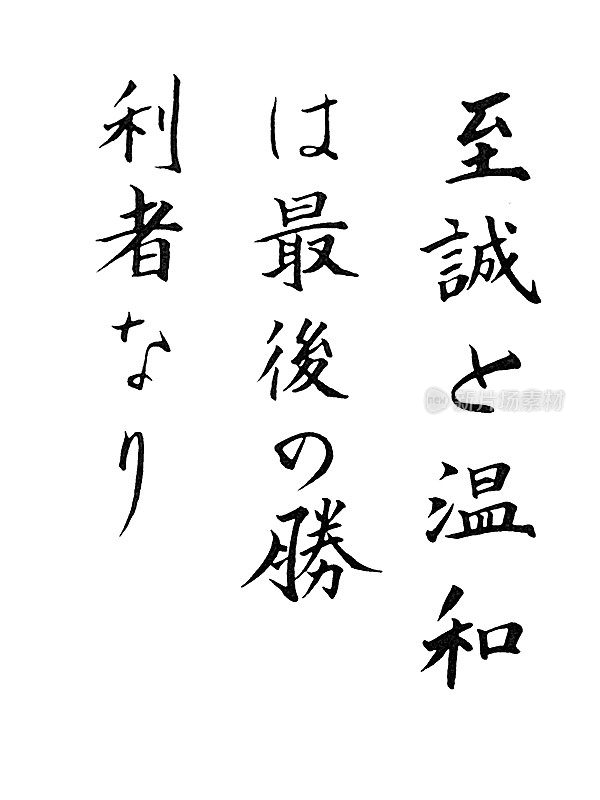 至誠と温和
は最後の勝
利者なり
new 新片场素材